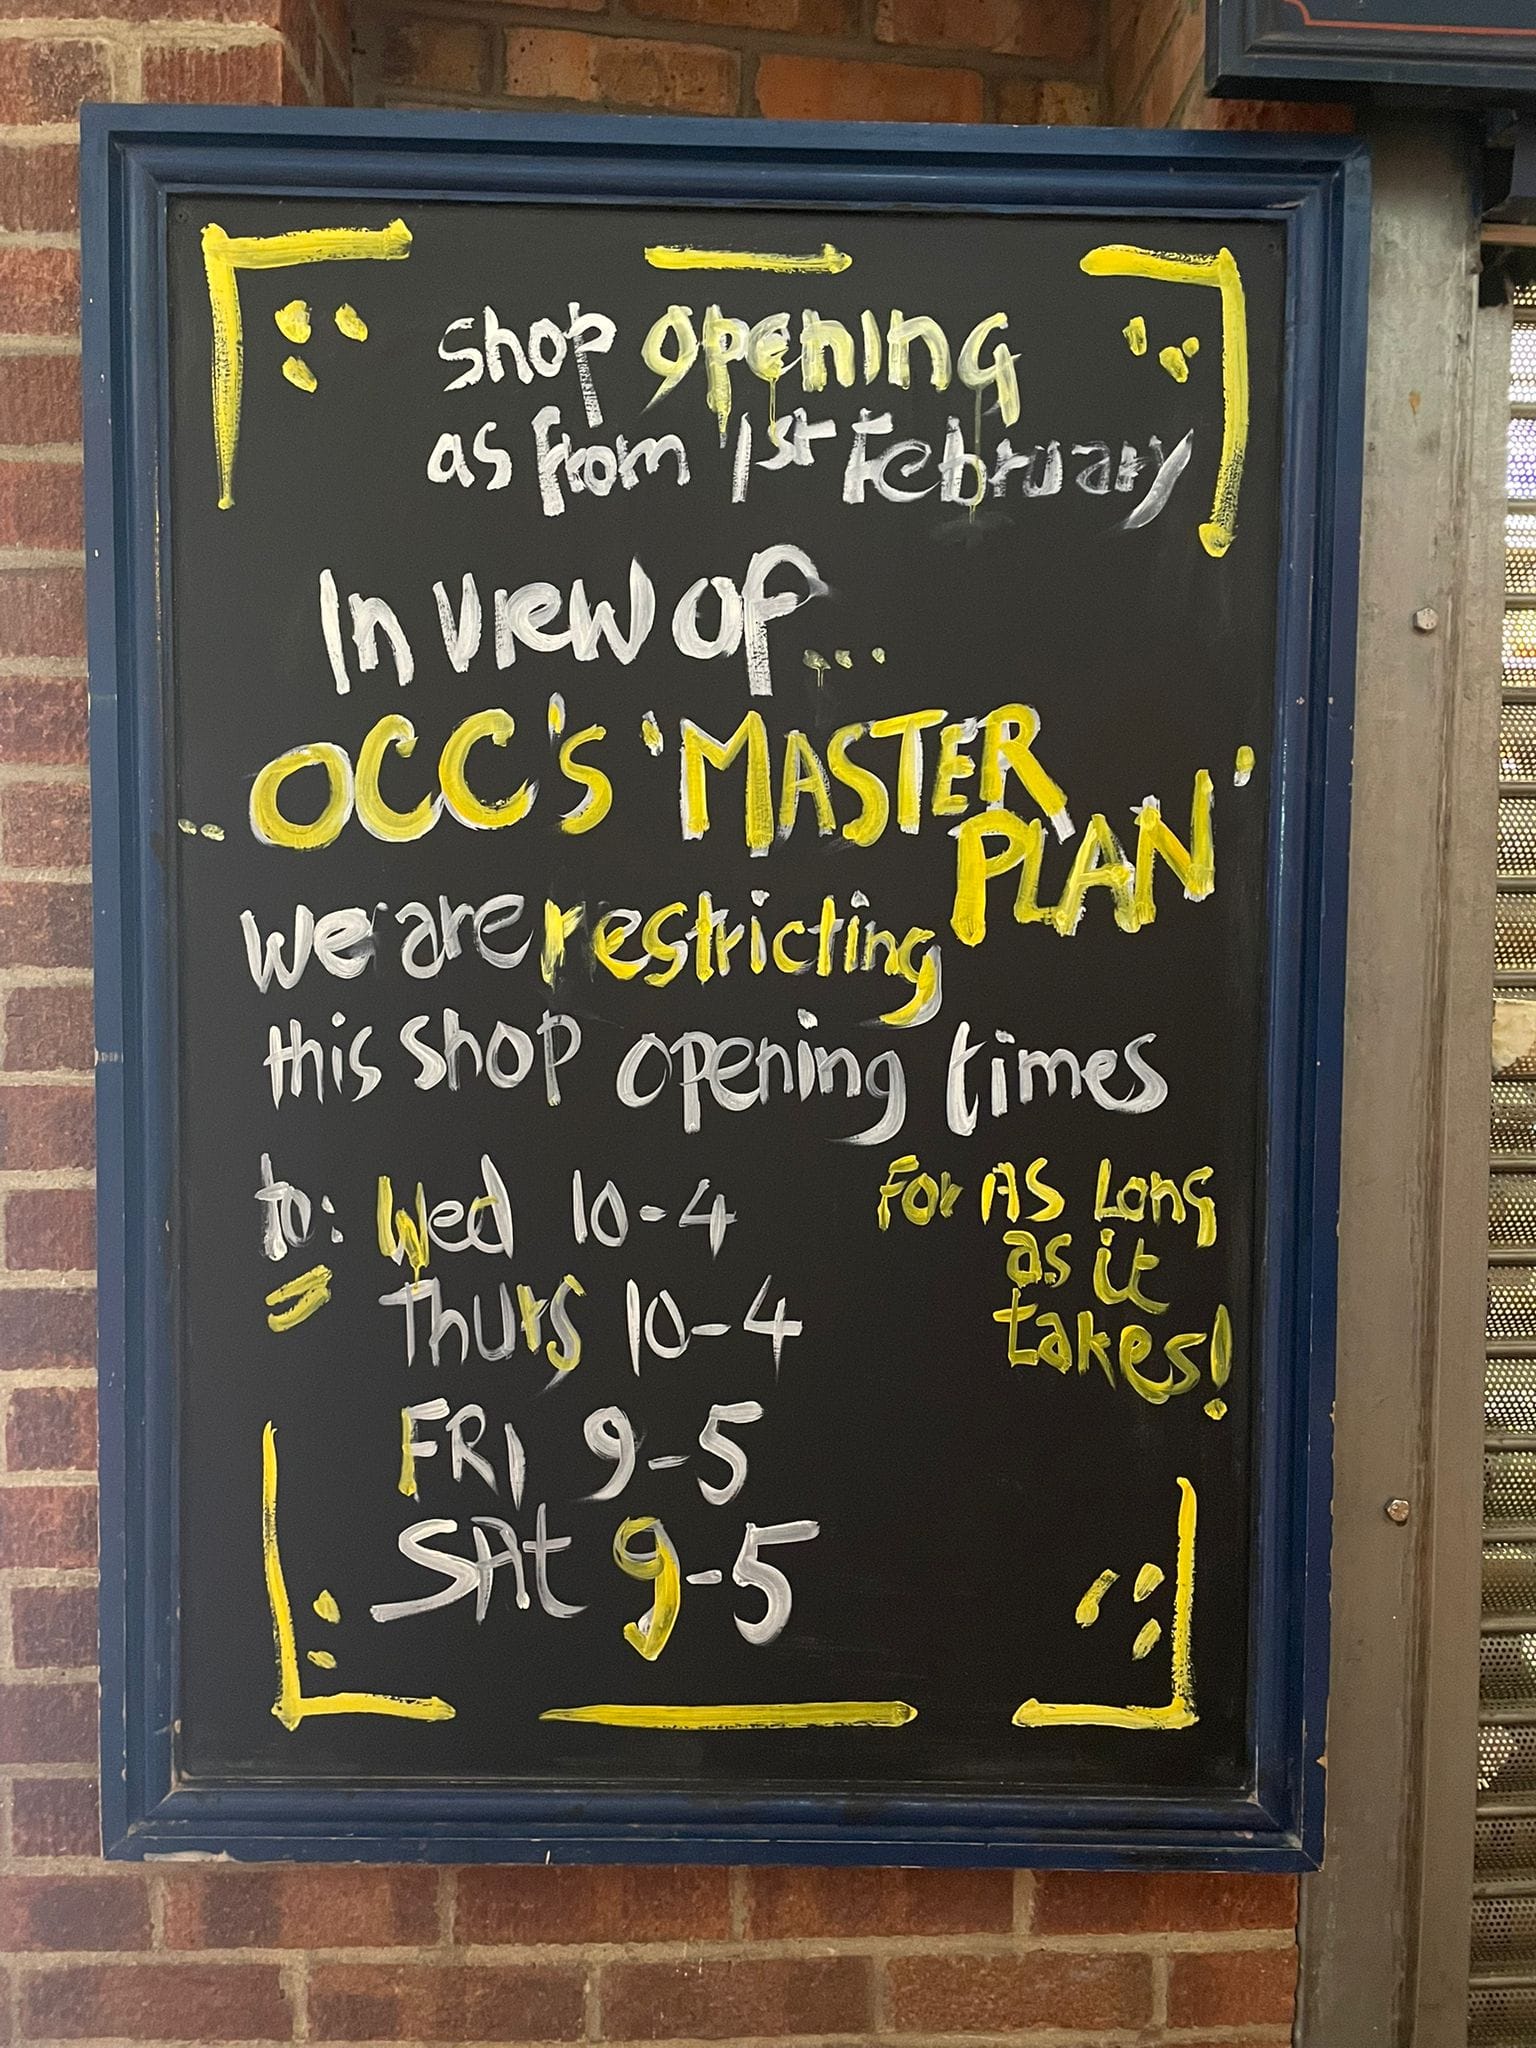 shop opening
as from 1st February
In view of....
..OCC's 'MASTER
PLAN'
we are restricting
this shop opening times
to: Wed 10-4
For AS Long
as it
takes!
Thurs 10-4
FRI 9-5
SAt 9-5